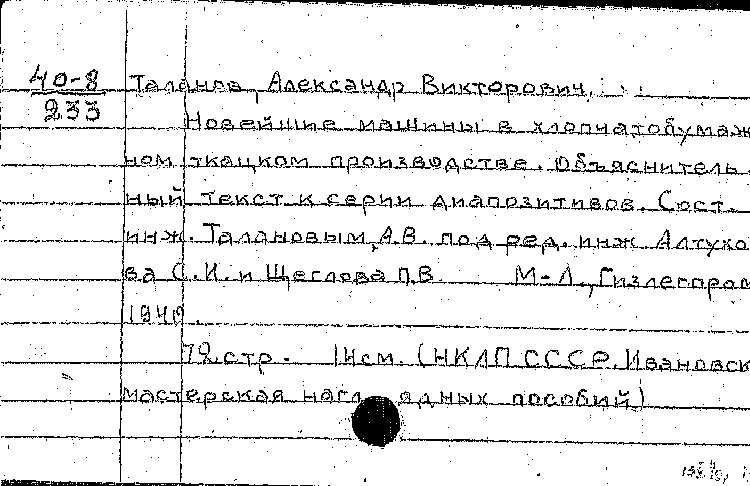 40-8
233
Таланов, Александр Викторович.
Новейшие машины в хлопчатобумаж
ном ткацком производстве. Объяснитель
ный текст к серии диапозитивов. Сост.
инж. Талановым, А.В. под ред. инж Алтухо
ва С.И. и Щеглова П.В М-Л., Гизлегпром
1940.
72.стр. 14см. (НКЛП СССР. Ивановск
мастерская нагл ядных пособий)